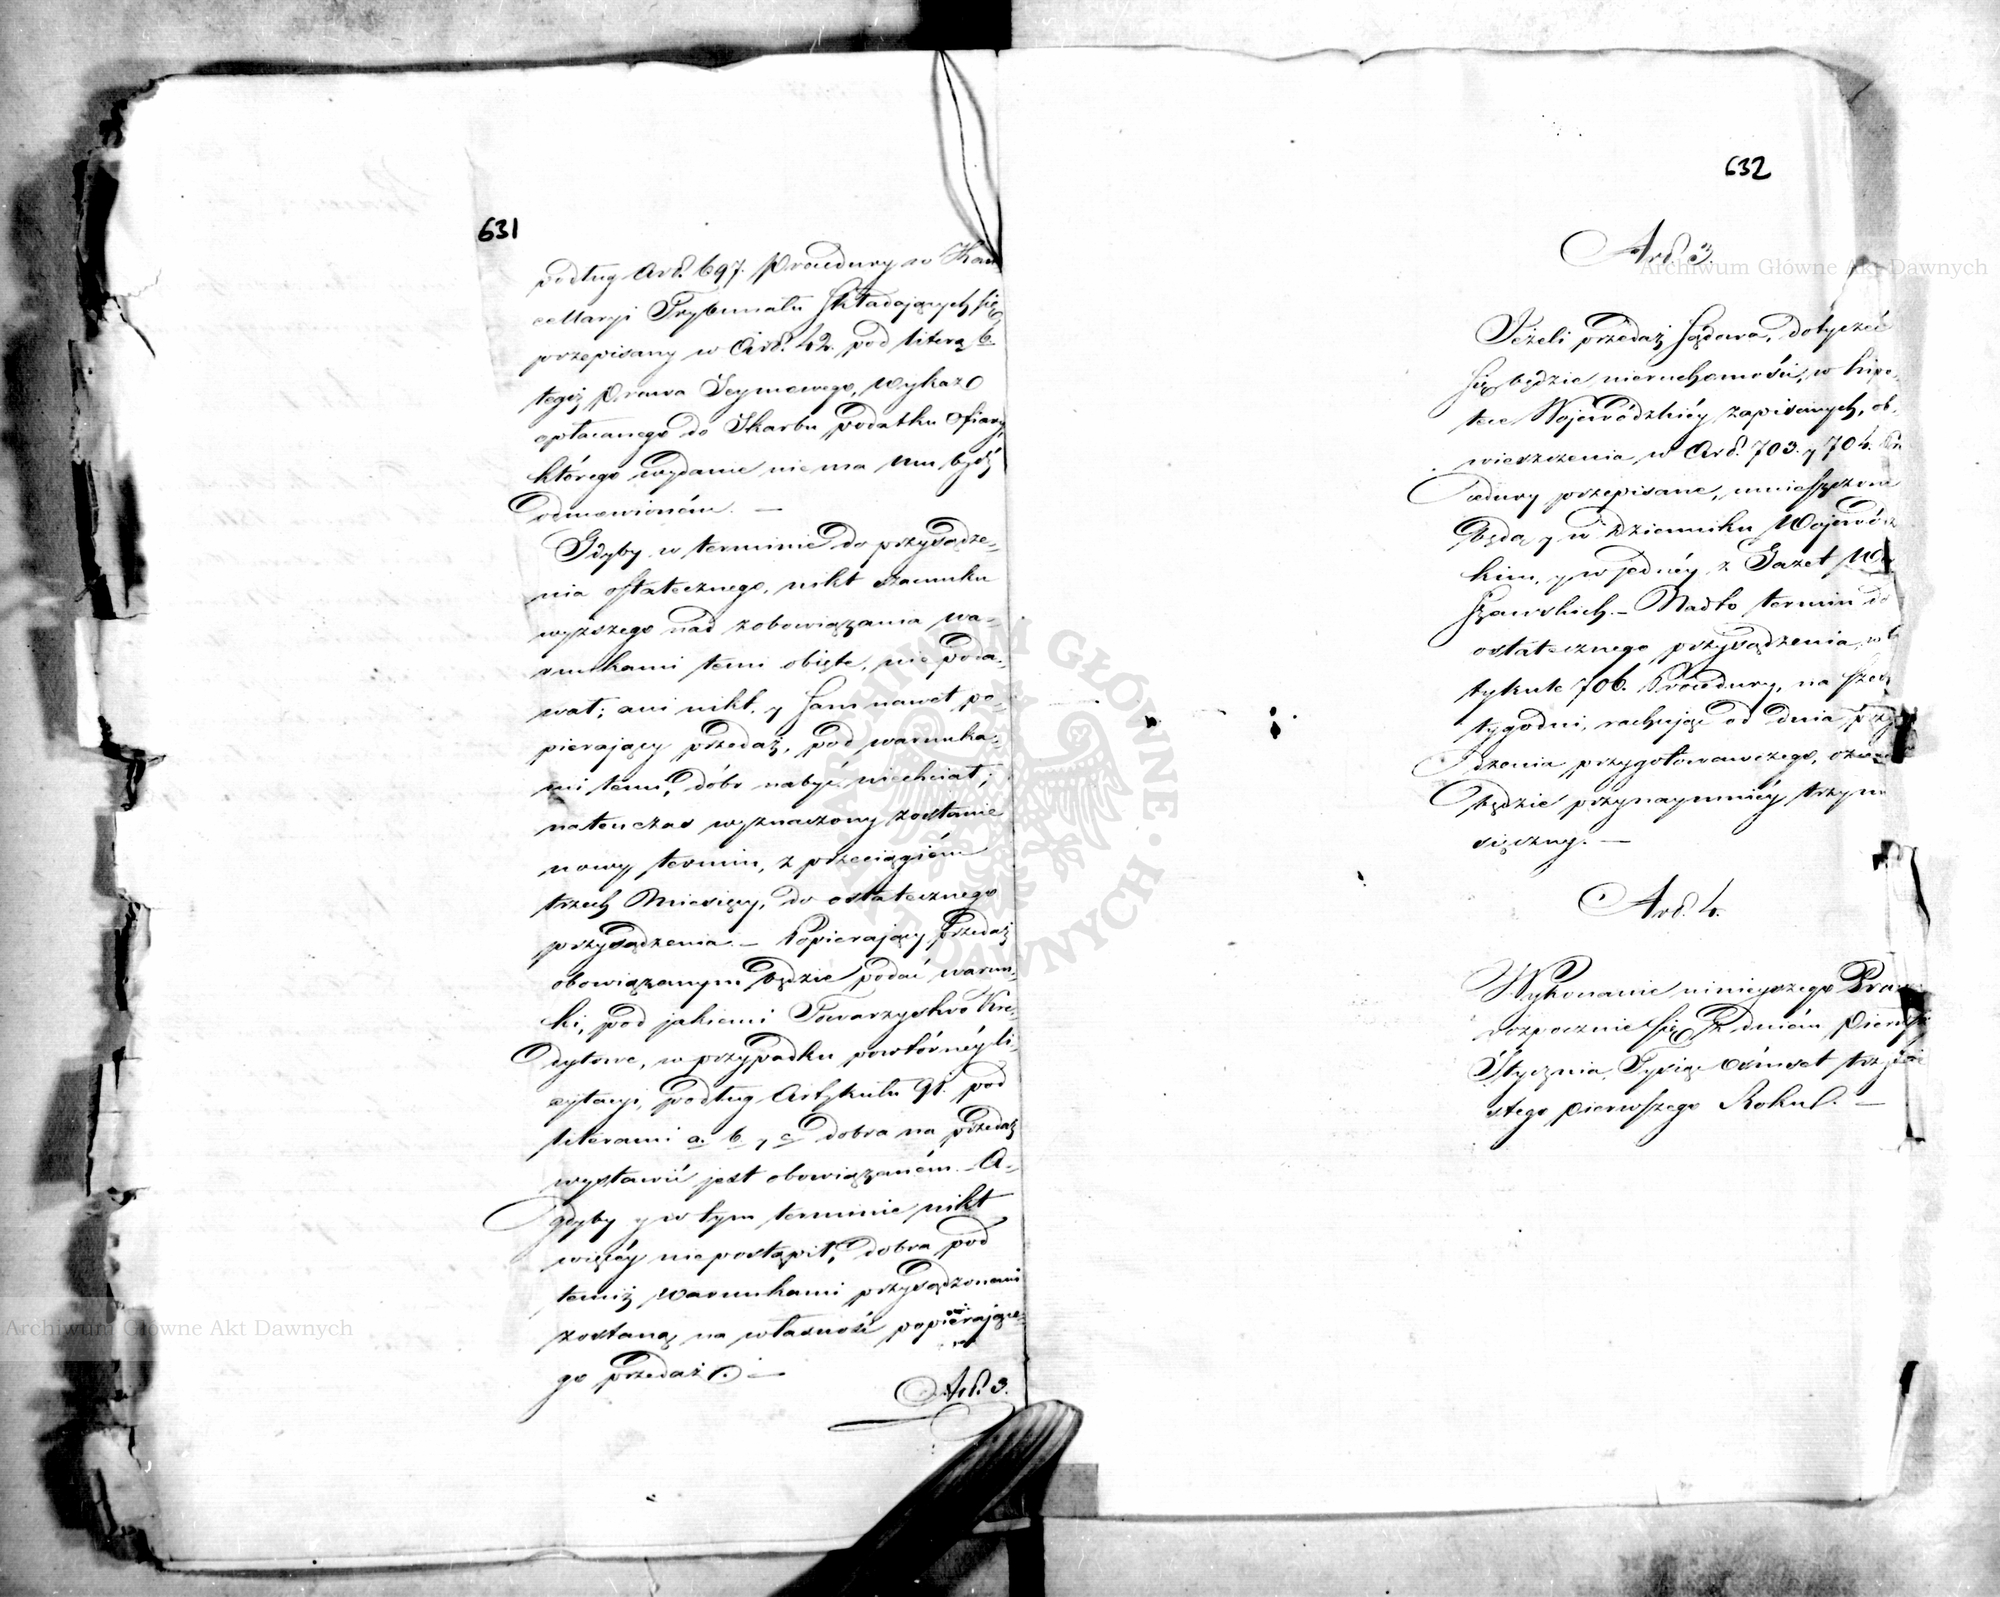 631
podług Art. 697. Procedury w Kan-
cellaryi Trybunału składających się
przepisany w Art. 42. pod literą b.
tegoż Prawa Seymowego, wykaz
opłacanego do Skarbu podatku ofiary,
którego wydanie nie ma mu bydź
odmówioném. —
Gdyby w terminie do przysądze-
nia ostatecznego, nikt szacunku
wyższego nad zobowiązania wa-
runkami temi objęte, nie poda-
wał; ani nikt, y sam nawet po-
pierający przedaż, pod warunka-
mi temi, dóbr nabyć niechciał;
natenczas wyznaczony zostanie
nowy termin, z przeciągiem
trzech Miesięcy, do ostatecznego
przysądzenia. — Popierający przedaż
obowiązanym będzie podać warun-
ki, pod jakiemi Towarzystwo Kre-
dytowe, w przypadku powtórnéy li-
cytacyi, podług Artykułu 91. pod
literami a. b. y c. dobra na przedaż
wystawić jest obowiązaném. — A-
gdyby y w tym terminie nikt
więcéy nie postąpił, dobra pod
temiż warunkami przysądzonemi
zostaną na własność popierające-
go przedaż. —
Art. 3.
632
Art. 3.
Jeżeli przedaż sądowa, dotyczeć
się będzie nieruchomości, w hipo-
tece Wojewódzkiéy zapisanych, ob-
wieszczenia w Art. 703. y 704. Pro
cedury przepisane, umieszczone
będą y w Dzienniku Wojewódz
kim, y w jednéy z Gazet War
szawskich. — Nadto termin do
ostatecznego przysądzenia, w
tykule 706. Procedury, na sześć
tygodni, rachując od dnia przy
dzenia przygotowawczego, ozna
będzie przynaymniéy trzy m
sięczny. —
Art. 4.
Wykonanie ninieyszego Praw
rozpocznie się z dniem pierwszy
Stycznia, Tysiąc ośmset trzydzie
stego pierwszego Roku. —
Archiwum Główne Akt Dawnych
Archiwum Główne Akt Dawnych
ARCHIWUM GŁÓWNE AKT DAWNYCH